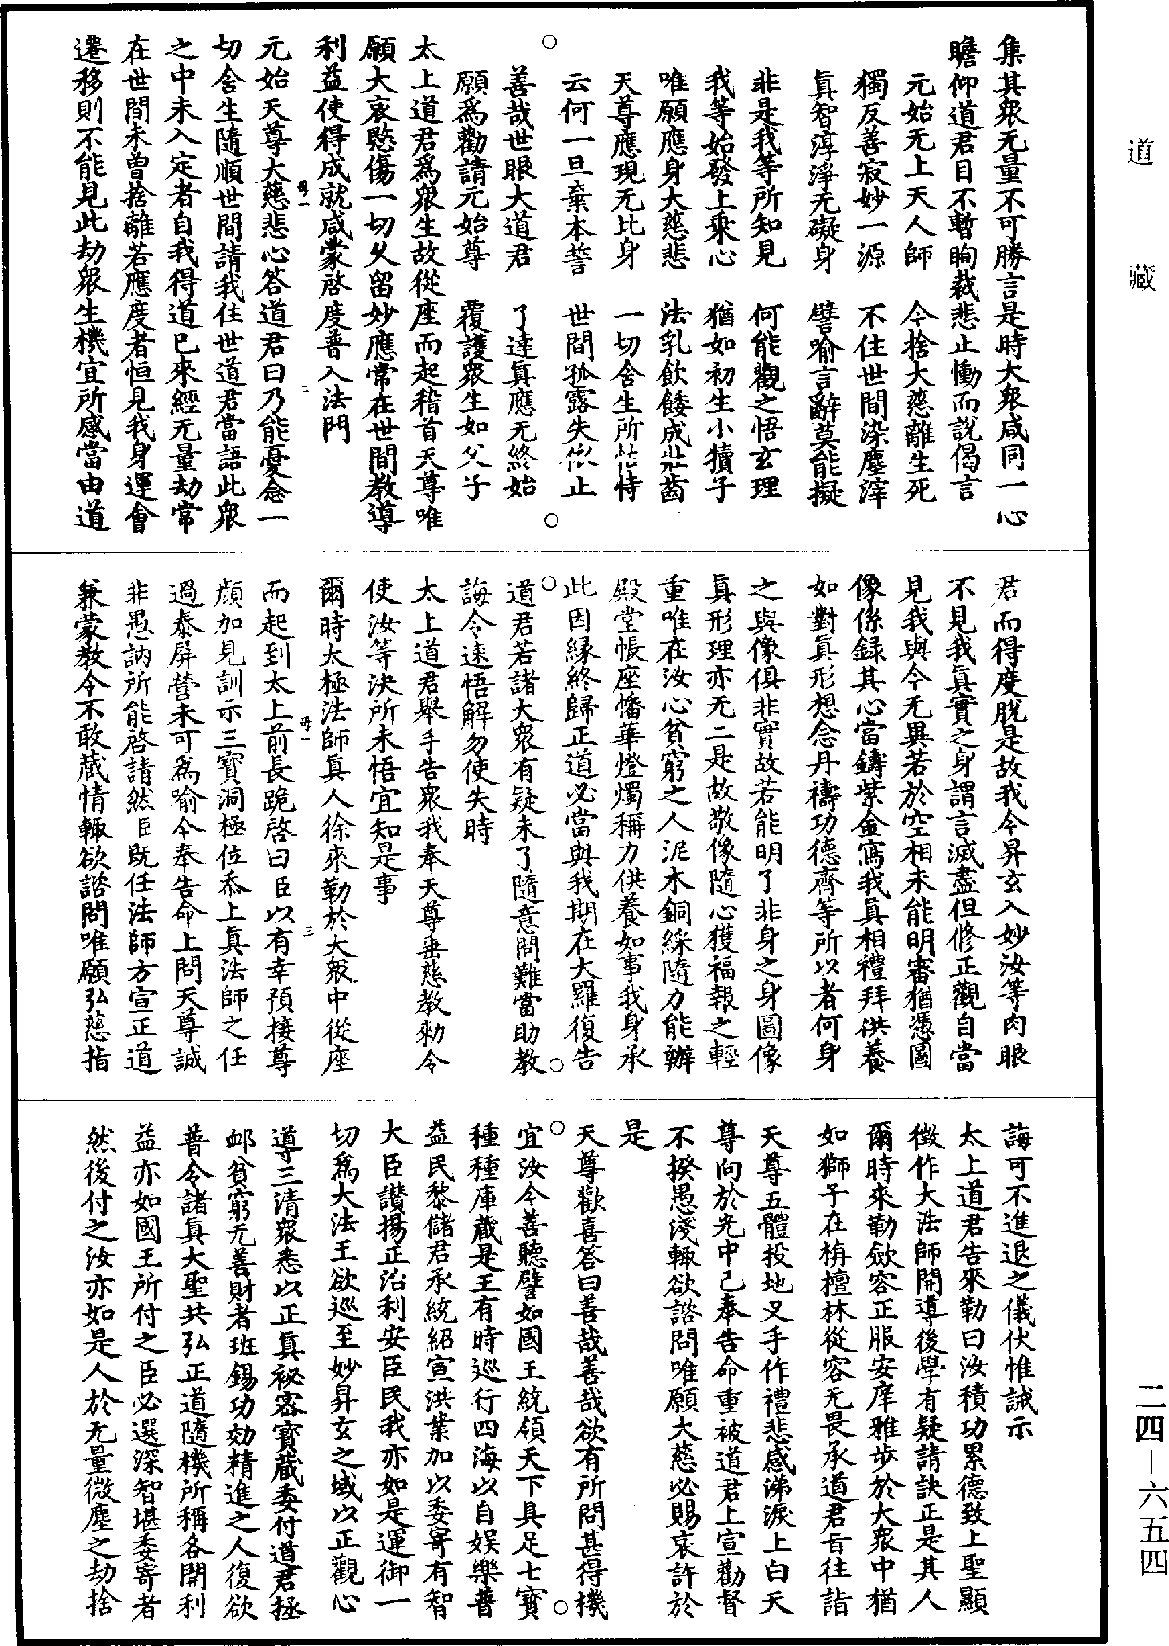 道藏
集其衆无量不可勝言是時大衆咸同一心
瞻仰道君目不暫眴裁悲止慟而說偈言
元始无上天人師　今捨大慈離生死
獨反善寂妙一源　不住世間染塵滓
真智淳淨无礙身　譬喻言辭莫能擬
非是我等所知見　何能觀之悟玄理
我等始發上乘心　猶如初生小犢子
唯願應身大慈悲　法乳飲餧成壯齒
天尊應現无比身　一切含生所恃
云何一旦棄本誓　世間孤露失依止
○　○
善哉世眼大道君　了達真應无終始
願為勸請元始尊　覆護衆生如父子
太上道君為衆生故從座而起稽首天尊唯
願大哀愍傷一切久留妙應常在世間教導
利益使得成就咸蒙啓度普入法門
元始天尊大慈悲心答道君曰乃能憂念一
切含生隨順世間請我住世道君當語此衆
之中未入定者自我得道已來經无量劫常
在世間未曾捨離若應度者恒見我身運會
遷移則不能見此劫衆生機宜所感當由道
君而得度脫是故我今昇玄入妙汝等肉眼
不見我真實之身謂言滅盡但修正觀自當
見我與今无異若於空相未能明審猶憑圖
像係錄其心當鑄紫金寫我真相禮拜供養
如對真形想念丹禱功德齊等所以者何身
之與像俱非實故若能明了非身之身圖像
真形理亦无二是故敬像隨心獲福報之輕
重唯在汝心貧窮之人泥木銅綵隨力能辦
殿堂帳座幡華燈燭稱力供養如事我身承
此因緣終歸正道必當與我期在大羅復告
○　○
道君若諸大衆有疑未了隨意問難當助教
誨令速悟解勿使失時
太上道君舉手告衆我奉天尊垂慈教勑令
使汝等決所未悟宜知是事
爾時太極法師真人徐來勒於大衆中從座
而起到太上前長跪啓曰臣以有幸預接尊
顏加見訓示三寶洞極位忝上真法師之任
過泰屏營未可為喻今奉告命上問天尊誠
非愚訥所能啓請然臣既任法師方宣正道
兼蒙教令不敢藏情輒欲諮問唯願弘慈指
誨可不進退之儀伏惟誡示
太上道君告來勒曰汝積功累德致上聖顯
徵作大法師開導後學有疑請訣正是其人
爾時來勒斂容正服安庠雅步於大衆中猶
如獅子在栴檀林從容无畏承道君旨往詣
天尊五體投地叉手作禮悲感涕淚上白天
尊向於光中已奉告命重被道君上宣勸督
不揆愚淺輒欲諮問唯願大慈必賜哀許於
是
天尊歡喜答曰善哉善哉欲有所問甚得機
○　○
宜汝今善聽譬如國王統領天下具足七寶
種種庫藏是王有時巡行四海以自娛樂普
益民黎儲君承統紹宣洪業加以委寄有智
大臣讚揚正治利安臣民我亦如是運御一
切為大法王欲巡至妙昇玄之域以正觀心
導三清衆悉以正真祕密寶藏委付道君拯
卹貧窮无善財者班錫功効精進之人復欲
普令諸真大聖共弘正道隨機所稱各開利
益亦如國王所付之臣必選深智堪委寄者
然後付之汝亦如是人於无量微塵之劫捨
二四—六五四